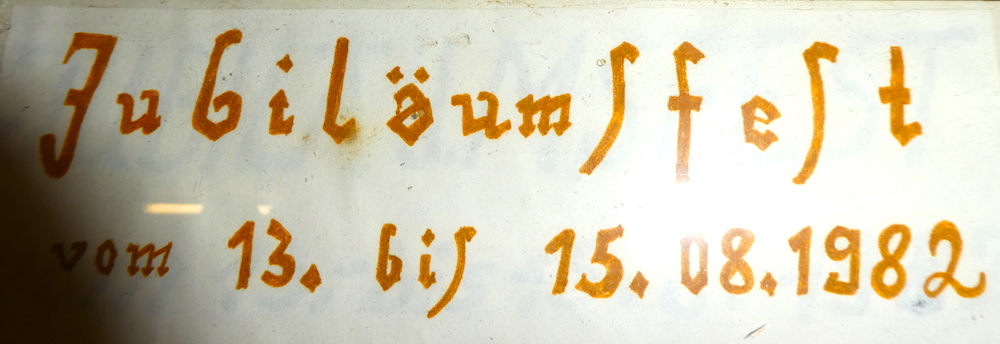 Jubiläumſfeſt
vom 13. biſ 15.08.1982